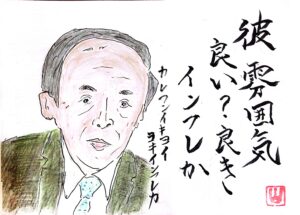 彼 雰囲気
良い？良き
インフレか
カレフンイキヨイ
ヨキインフレカ